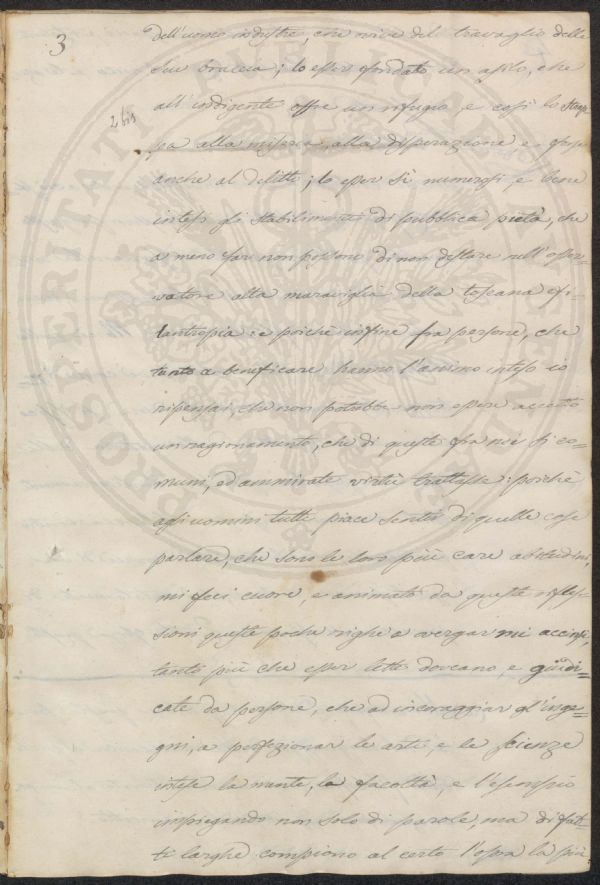 3
dell'uomo industre, che vive del travaglio delle
sue braccia; lo esser fondato un asilo, che
all'indigente offre un rifugio, e così lo strap-
2 bis
pa alla miseria, alla disperazione e forse
anche al delitto; lo esser sì numerosi, e bene
intesi gli stabilimenti di pubblica pietà, che
a meno far non possono di non destare nell'osser-
vatore alta maraviglia della toscana fi-
lantropia: e poichè infine fra persone, che
tanto a beneficare hanno l'animo inteso io
ripensai, che non potrebbe non essere accetto
un ragionamento, che di queste fra noi sì co-
muni, ed ammirate virtù trattasse: poichè
agli uomini tutti piace sentir di quelle cose
parlare, che sono le loro più care abitudini,
mi feci cuore, e animato da queste rifles-
sioni queste poche righe a vergar mi accinsi,
tanto più che esser lette doveano, e giudi-
cate da persone, che ad incoraggiar gl'inge-
gni, a perfezionar le arti, e le scienze
intese la mente, le facoltà, e l'esempio
impiegando non solo di parole, ma di fat-
ti larghe compiono al certo l'opra la più
PROSPERITATI PUBLICAE AUGENDAE